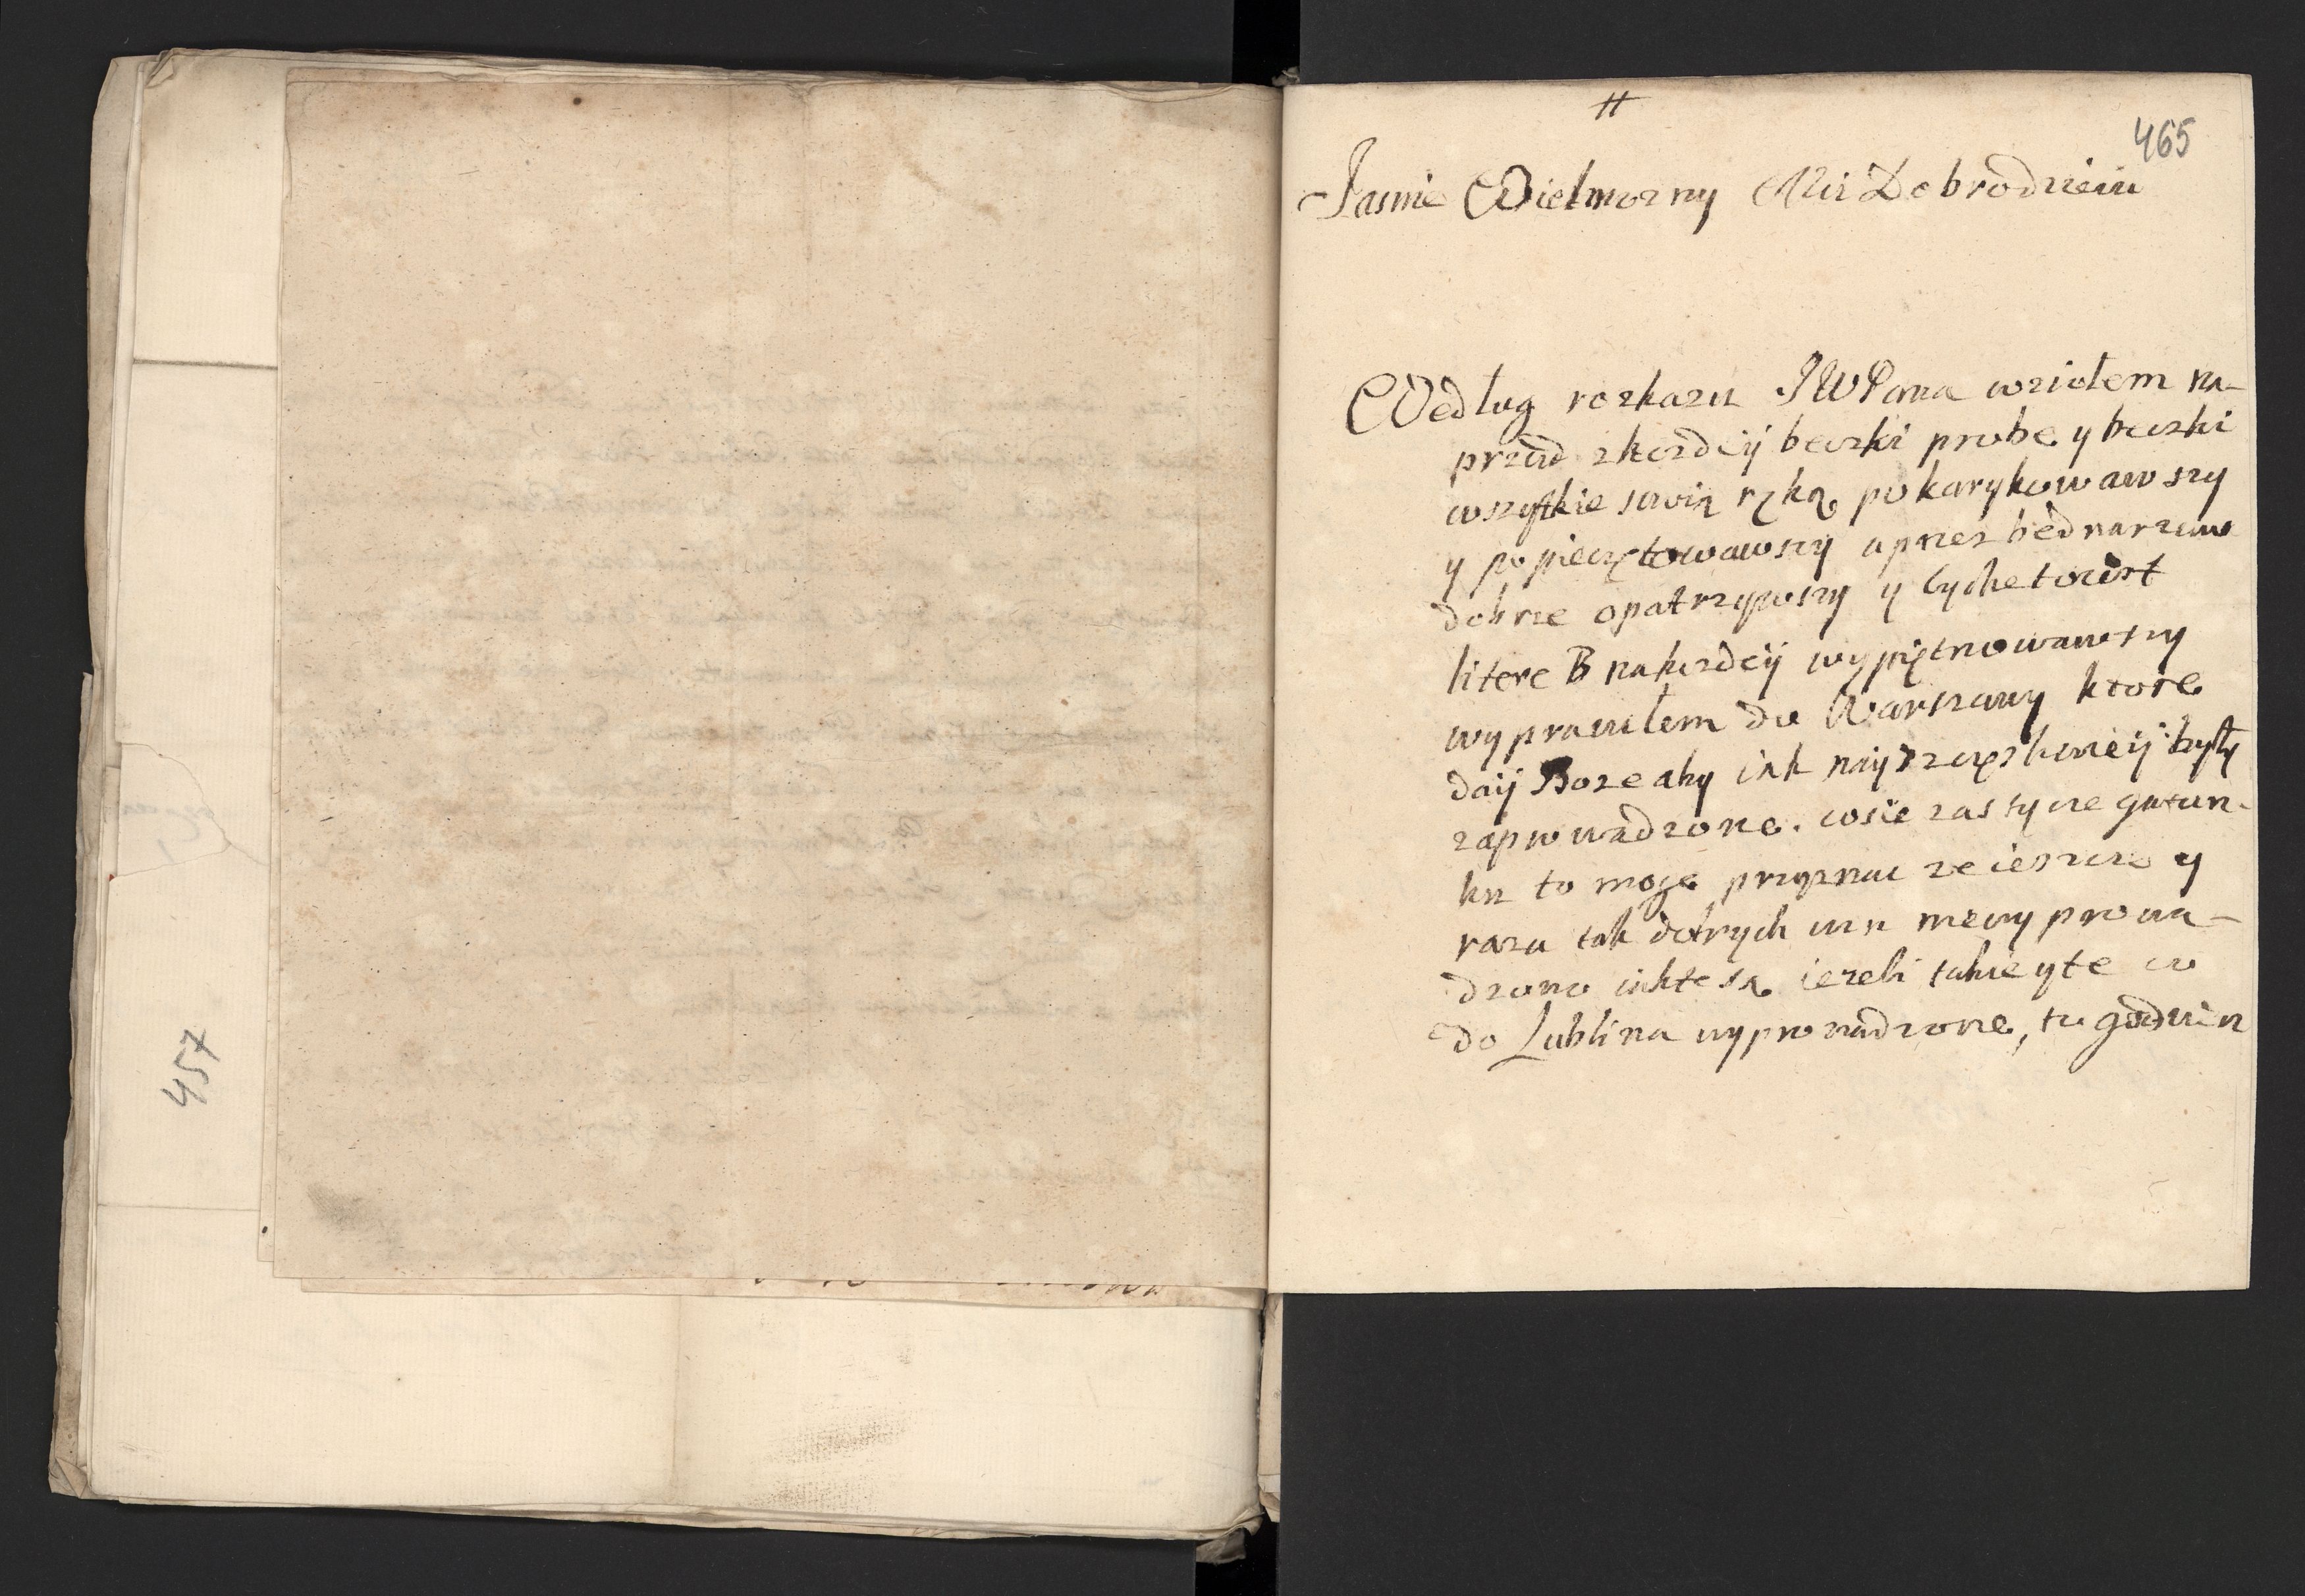 457
#
465
Jasnie Wielmozny Mci Dobrodzieiu
Według rozkazu JWPana wziołem na-
przud zkozdeÿ beczki probe y beczki
wszystkie swoią ręką pokarykowawszy
y popieczętowawszy a przez bednarzuw
dobrze opatrzywszy y
litere B nakozdeÿ wypiętnowawszy
wyprawiłem do Warszawy ktore
daÿ Boze aby iak nay były
zaprowadzone. cosie zas tycze gatun-
ku to moge przyznac ze ieszcze y
razu tak dobrych win niewyprowa-
dzono iakte są iezeli takie yte
do Lublina wyprowadzone, tu